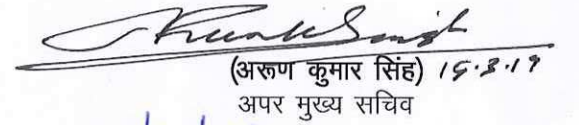 (अरूण कुमार सिंह) 15.3.19
अपर मुख्य सचिव